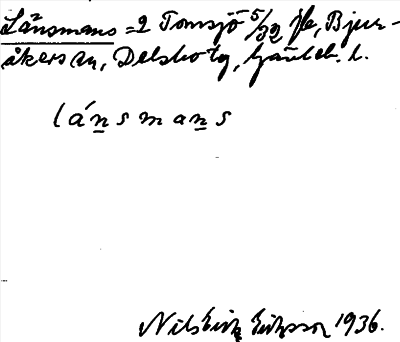 Länsmans =2 Tomsjö 5/32 fk, Bjur-
åkers sn, Delsbo tg, Gävleb. l.
lánsmans
Nils Erik Eriksson 1936.